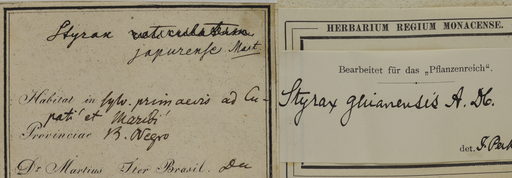 Styrax reticulatum
japurense Mart
Habitat in sylv. primaevis ad Cu-
pati et Maribi
Provinciae R. Negro
Dr. Martius Iter Brasil.
HERBARIUM REGIUM MONACENSE.
Bearbeitet für das „Pflanzenreich“.
Styrax guianensis A. DC.
det. J. Perk